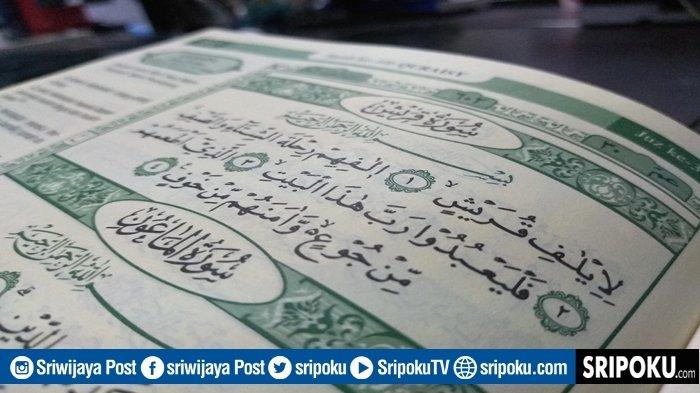 QURAISY
٦٠٢
٣٠
Juz ke-
سُورَةُ قُرَيْشٍ
بِسْمِ اللّٰهِ الرَّحْمٰنِ الرَّحِيْمِ
لِاِيْلٰفِ قُرَيْشٍۙ ١ اٖلٰفِهِمْ رِحْلَةَ الشِّتَاۤءِ وَالصَّيْفِۚ
٢ فَلْيَعْبُدُوْا رَبَّ هٰذَا الْبَيْتِۙ ٣ الَّذِيْٓ اَطْعَمَهُمْ
مِّنْ جُوْعٍ ەۙ وَّاٰمَنَهُمْ مِّنْ خَوْفٍ ٤
سُورَةُ الْمَاعُوْنَ
بِسْمِ اللّٰهِ الرَّحْمٰنِ الرَّحِيْمِ
الدِّيْنِ
Sriwijaya Post sriwijaya Post sripoku SripokuTV sripoku.com SRIPOKU.com